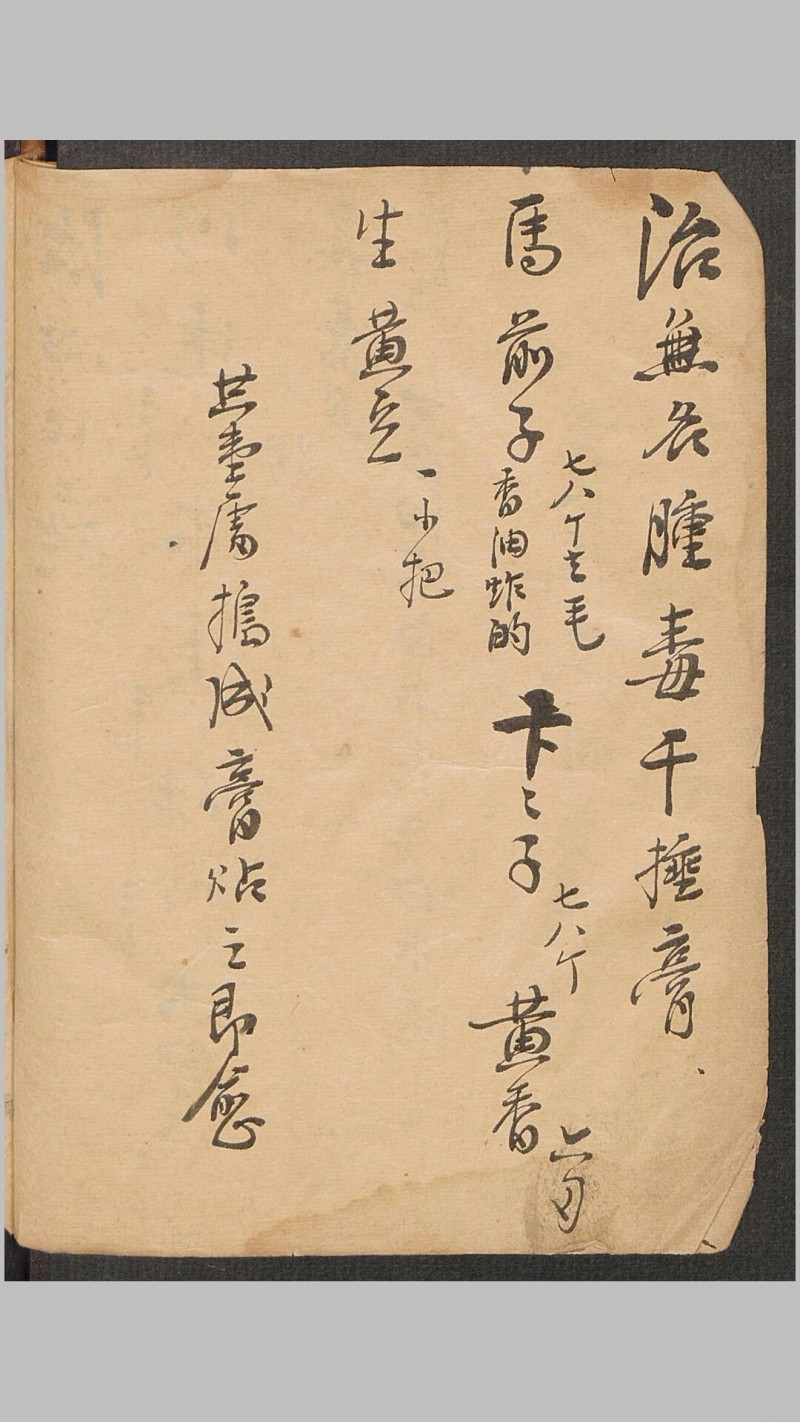 治無名腫毒千捶膏
馬前子 七八个去毛 香油炸的 卞〻子 七八个 黄香
生黄豆 一小把
共壹處搗成膏貼之即愈